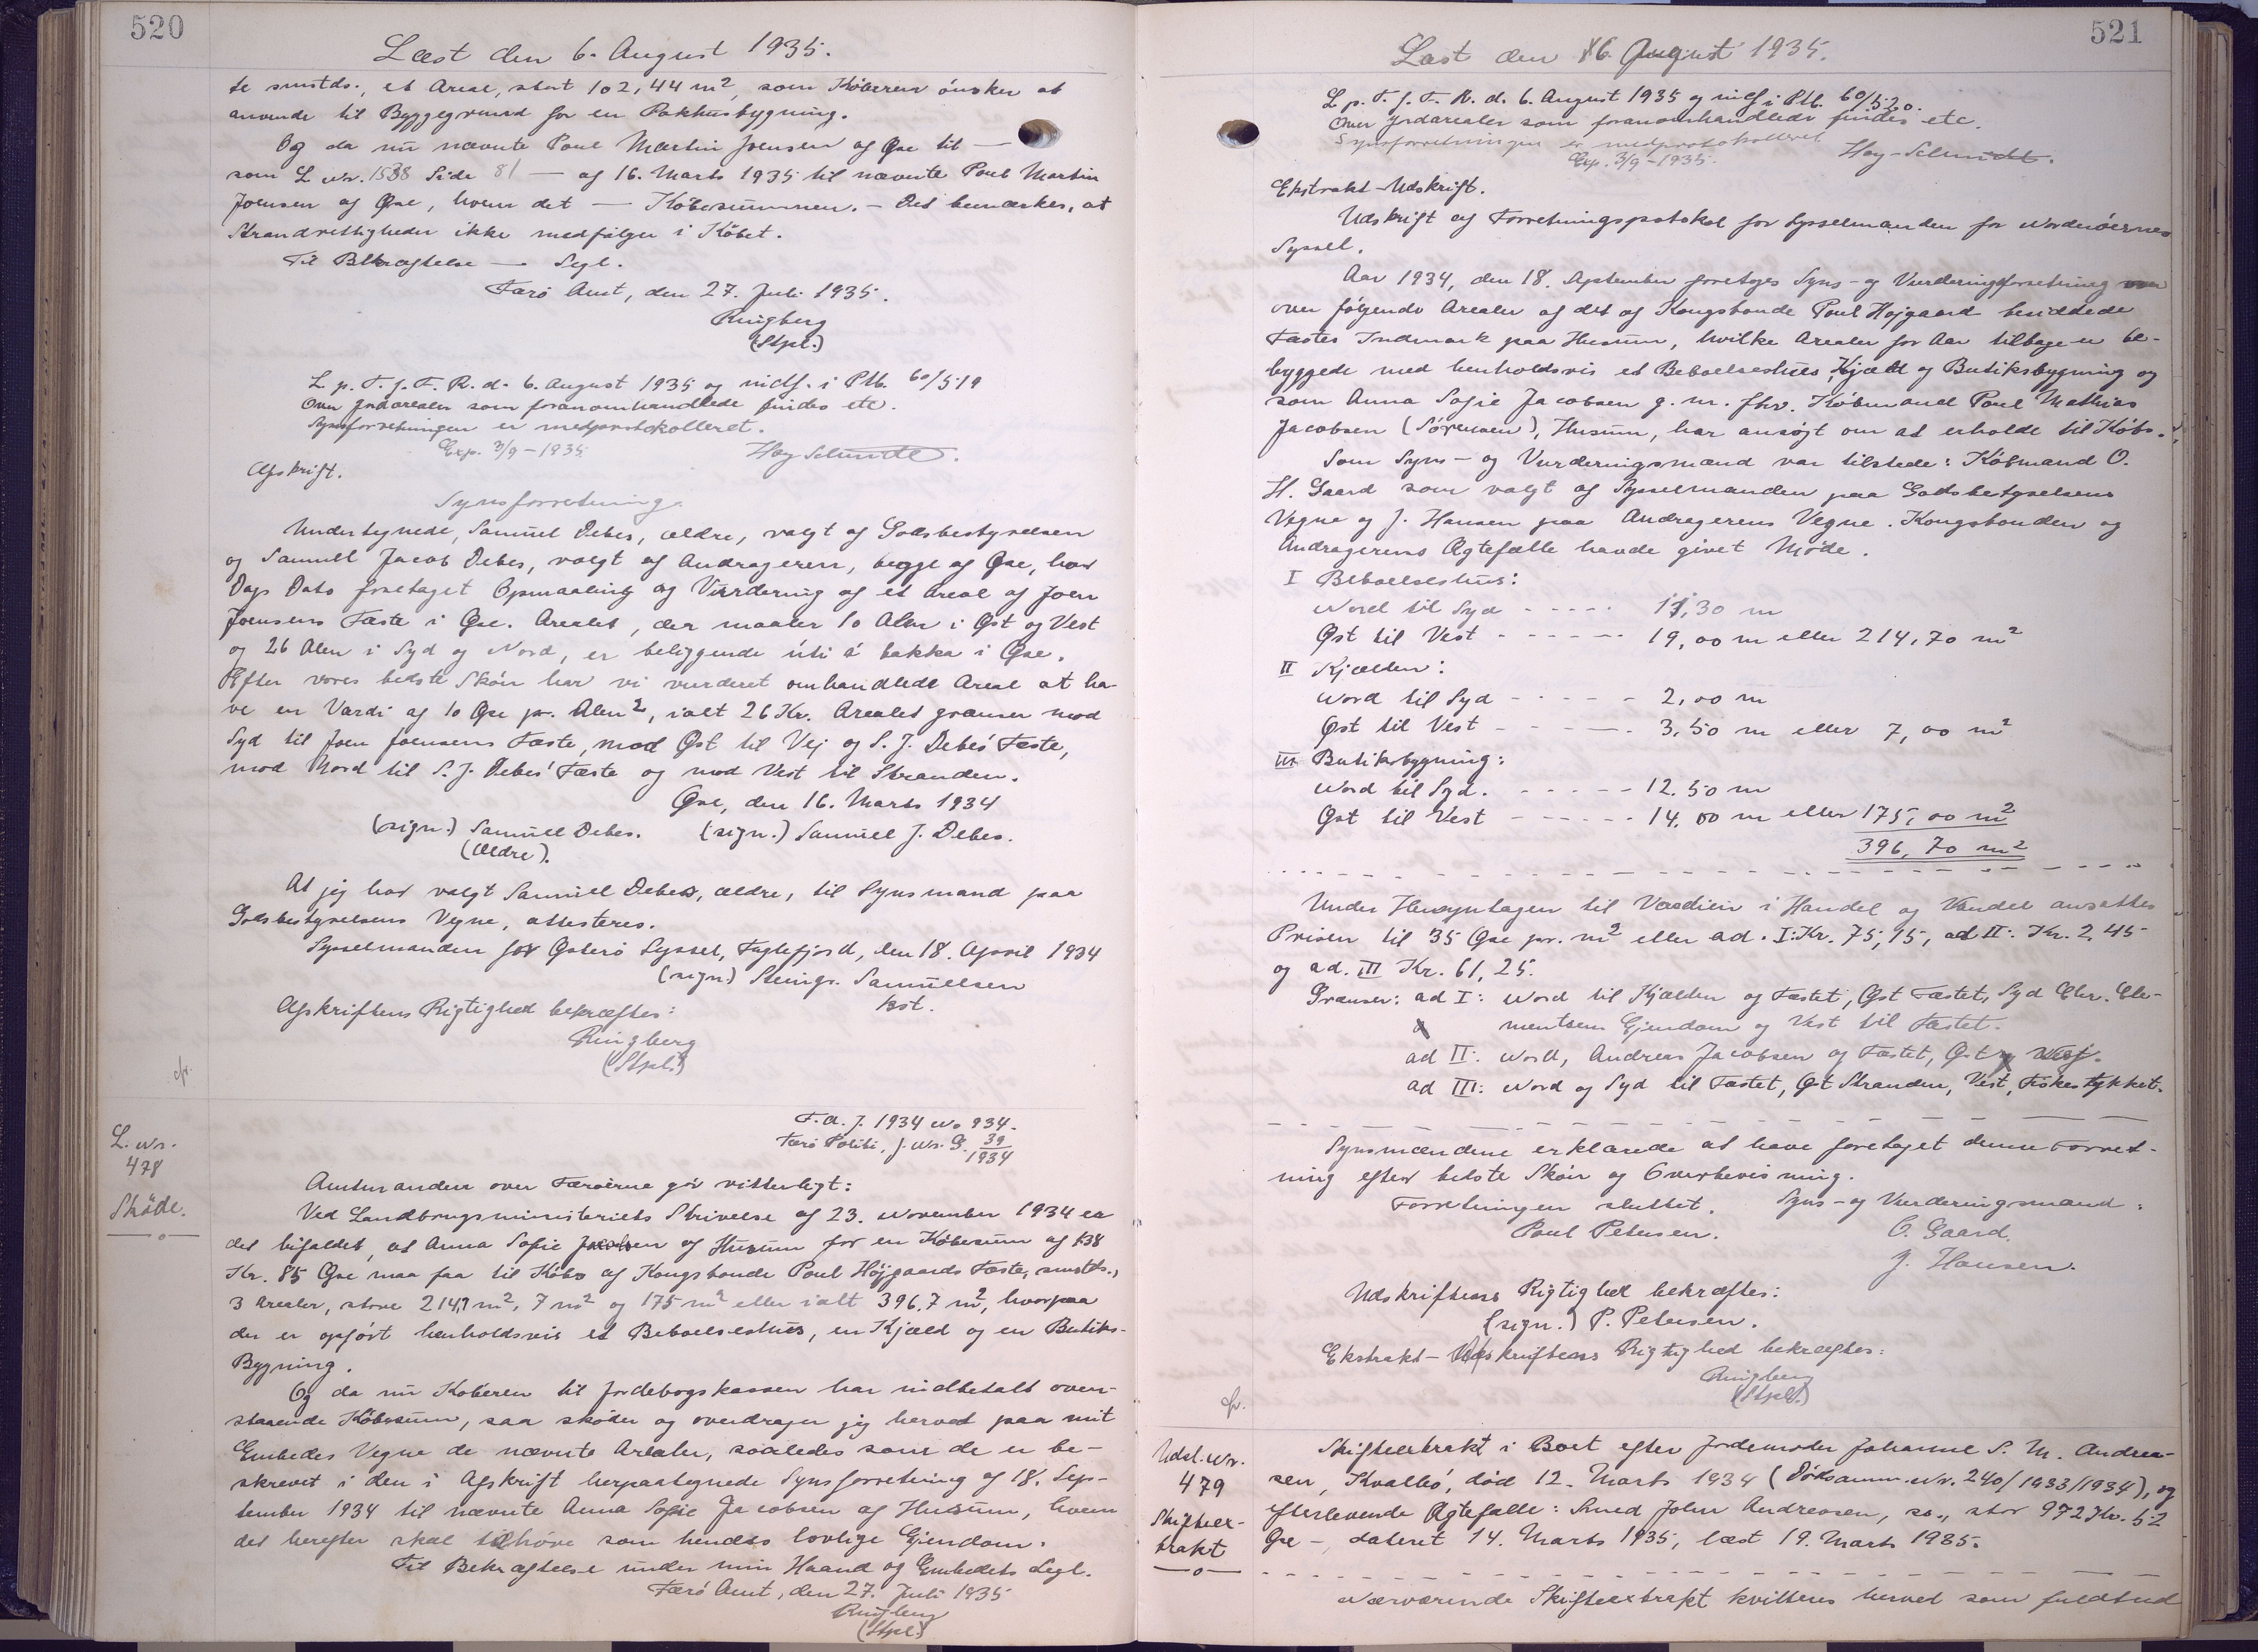 520
Læst den 6. August 1935.
te smstds., et Areal, stort 102,44 m², som Køberen ønsker at
anvende til Byggegrund for en Pakhusbygning.
Og da nu nævnte Poul Martin Joensen af Øre til —
som L. Nr. 1588 Side 81 — af 16. Marts 1935 til nævnte Poul Martin
Joensen af Øre, hvem det — Købesummen. – Det bemærkes, at
Strandrettigheder ikke medfølger i Købet.
Til Bekræftelse — Segl.
Færø Amt, den 27. Juli 1935.
Ringberg
(Stpl.)
L. p. T. f. F. R. d. 6. August 1935 og indf. i Ptb. 60/519
Over Jordarealer som foranomhandlede findes etc.
Synsforretningen er medprotokolleret.
Exp. 3/9-1935
Høg Schmidt.
Afskrift.
Synsforretning.
Undertegnede, Samuel Debes, ældre, valgt af Godsbestyrelsen
og Samuell Jacob Debes, valgt af Andrageren, begge af Øre, har
Dags Dato foretaget Opmaaling og Vurdering af et Areal af Joen
Joensens Fæste i Øre. Arealet, der maaler 10 Alen i Øst og Vest
og 26 Alen i Syd og Nord, er beliggende úti á bakka i Øre.
Efter vores bedste Skøn har vi vurderet omhandlede Areal at ha-
ve en Værdi af 10 Øre pr. Alen², ialt 26 Kr. Arealet grænser mod
Syd til Joen Joensens Fæste, mod Øst til Vej og S. J. Debes' Fæste,
mod Nord til S. J. Debes' Fæste og mod Vest til Stranden.
Øre, den 16. Marts 1934
(sign.) Samuel Debes. (sign.) Samuel J. Debes.
(Ældre).
At jeg har valgt Samuell Debes, ældre, til Synsmand paa
Godsbestyrelsens Vegne, attesteres.
Sysselmanden for Østerø Syssel, Fuglefjord, den 18. April 1934
(sign.) Steingr. Samuelsen
kst.
Afskriftens Rigtighed bekræftes:
Ringberg
(Stpl.)
cfr.
F. A. J. 1934 No 934.
Færø Politi, J. Nr. G. 39/1934
L. Nr.
478
Skøde.
Amtmanden over Færøerne gør vitterligt:
Ved Landbrugsministeriets Skrivelse af 23. November 1934 er
det bifaldet, at Anna Sofie Jacobsen af Husum for en Købesum af 138
Kr. 85 Øre maa faa til Købs af Kongsbonde Poul Højgaards Fæste, smstds.,
3 Arealer, store 214,7 m², 7 m² og 175 m² eller ialt 396,7 m², hvorpaa
der er opført henholdsvis et Beboelseshus, en Kjæld og en Butiks-
Bygning.
Og da nu Køberen til Jordebogskassen har indbetalt oven-
staaende Købesum, saa skøder og overdrager jeg herved paa mit
Embedes Vegne de nævnte Arealer, saaledes som de er be-
skrevet i den i Afskrift herpaategnede Synsforretning af 18. Sep-
tember 1934 til nævnte Anna Sofie Jacobsen af Husum, hvem
det herefter skal tilhøre som hendes lovlige Ejendom.
Til Bekræftelse under min Haand og Embedets Segl.
Færø Amt, den 27. Juli 1935
Ringberg
(Stpl.)
521
Læst den 6. August 1935.
L. p. T. f. F. R. d. 6. August 1935 og indf. i Ptb. 60/520.
Over Jordarealer som foranomhandlede findes etc.
Synsforretningen er medprotokolleret
Exp. 3/9-1935.
Høg-Schmidt.
Ekstrakt-Udskrift.
Udskrift af Forretningsprotokol for Sysselmanden for Norderøernes
Syssel.
Aar 1934, den 18. September foretoges Syns- og Vurderingsforretning
over følgende Arealer af det af Kongsbonde Poul Højgaard besiddede
Fæstes Indmark paa Husum, hvilke Arealer for Aar tilbage er be-
byggede med henholdsvis et Beboelseshus, Kjæld og Butiksbygning og
som Anna Sofie Jacobsen g. m. fhv. Købmand Poul Mathias
Jacobsen (Sørensen), Husum, har ansøgt om at erholde til Købs.
Som Syns- og Vurderingsmænd var tilstede: Købmand O.
H. Gaard som valgt af Sysselmanden paa Godsbestyrelsens
Vegne og J. Hansen paa Andragerens Vegne. Kongsbonden og
Andragerens Ægtefælle havde givet Møde.
I Beboelseshus:
Nord til Syd - - - - - 11,30 m
Øst til Vest - - - - - 19,00 m eller 214,70 m²
II Kjælden:
Nord til Syd - - - - - 2,00 m
Øst til Vest - - - - - 3,50 m eller 7,00 m²
III Butiksbygning:
Nord til Syd. - - - - - 12.50 m
Øst til Vest - - - - - 14.00 m eller 175,00 m²
396,70 m²
Under Hensyntagen til Værdien i Handel og Vandel ansattes
Prisen til 35 Øre pr. m² eller ad. I: Kr. 75,15, ad II: Kr. 2,45
og ad. III Kr. 61,25.
Grænser: ad I: Nord til Kjælden og Fæstet, Øst Fæstet, Syd Chr. Cle-
mentsens Ejendom og Vest til Fæstet.
ad II: Nord, Andreas Jacobsen og Fæstet, Øst Vej.
ad III: Nord og Syd til Fæstet, Øst Stranden, Vest, Fiskestykket.
Synsmændene erklærede at have foretaget denne Forret-
ning efter bedste Skøn og Overbevisning.
Forretningen sluttet. Syns- og Vurderingsmænd:
Poul Petersen. O. Gaard.
J. Hansen.
Udskriftens Rigtighed bekræftes:
(sign.) P. Petersen.
Ekstrakt-Udskriftens Rigtighed bekræftes:
Ringberg
(Stpl.)
cfr.
Udsl. Nr.
479
Skifteex-
trakt
Skifteextrakt i Boet efter Jordemoder Johanne S. M. Andrea-
sen, Kvalbø, død 12. Marts 1934 (Dødsanm. Nr. 240/1933/1934), og
efterlevende Ægtefælle: Smed John Andreasen, ss., stor 972 Kr. 52
Øre – dateret 14. Marts 1935, læst 19. Marts 1935.
Nærværende Skifteextrakt kvitteres herved som fuldtud